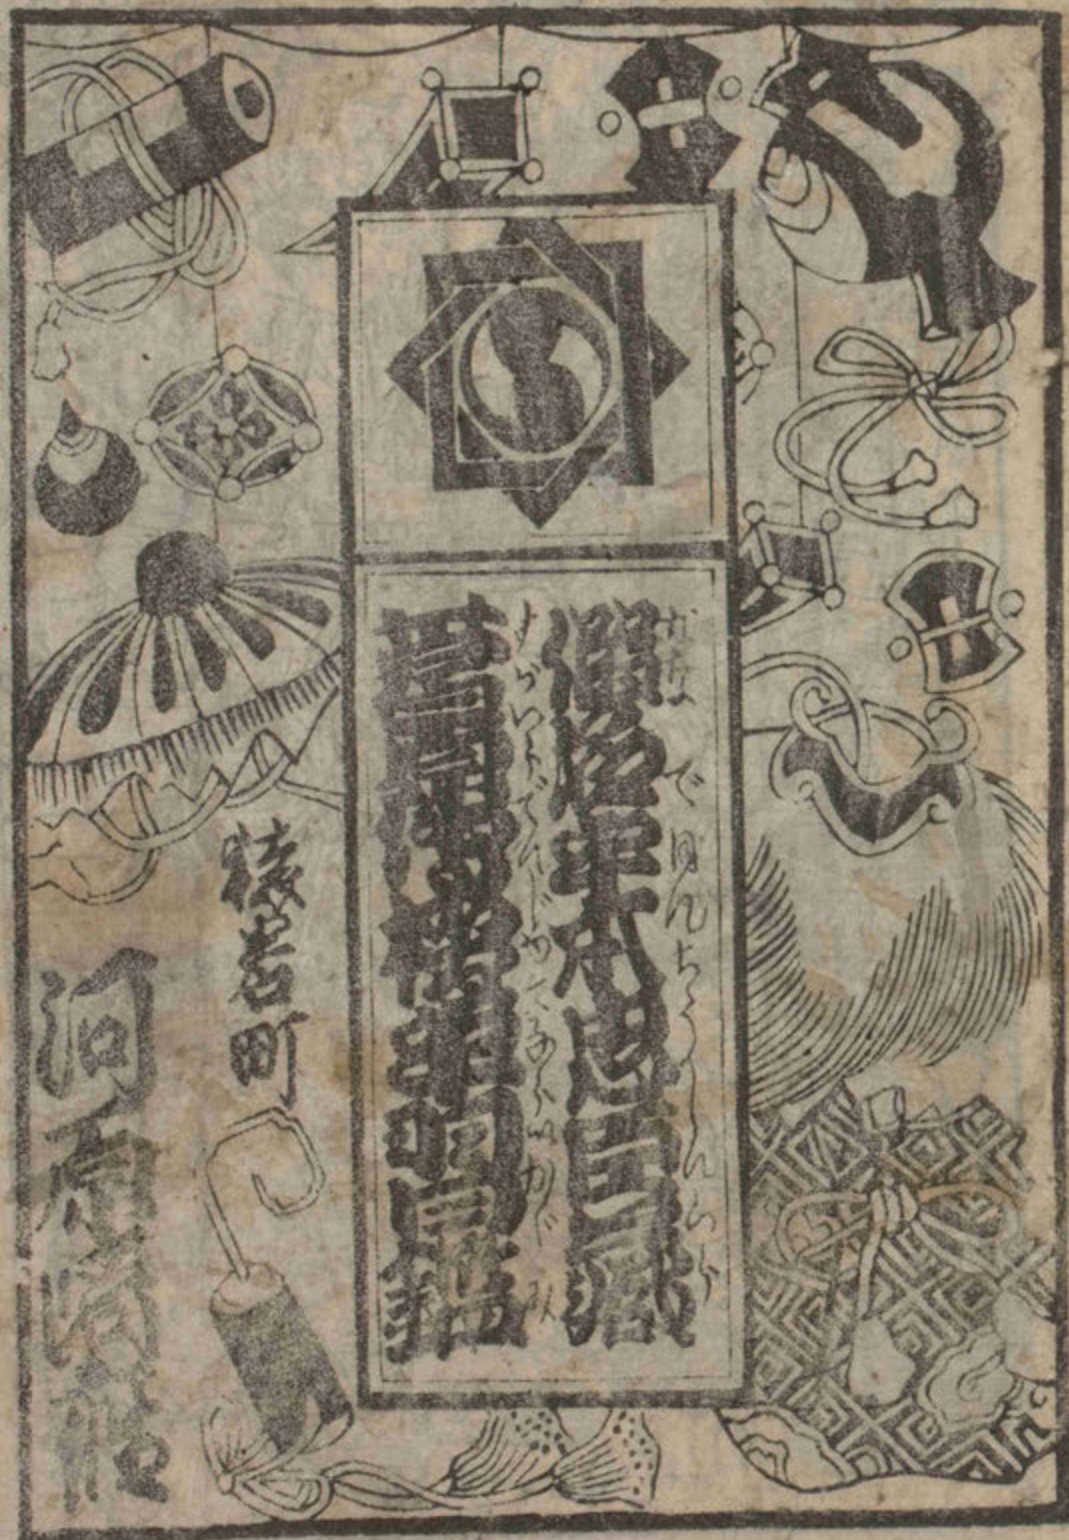 かなでほんちうしんぐら
假名手本忠臣蔵
すがはらでんじゆてならひかゞみ
菅原傳授手習鑑
猿若町
河原崎座